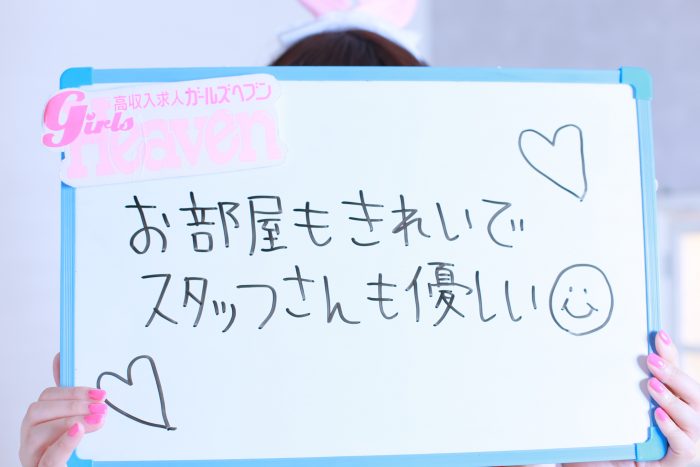 高収入求人ガールズヘブン
Girls
Heaven
お部屋もきれいで
スタッフさんも優しい